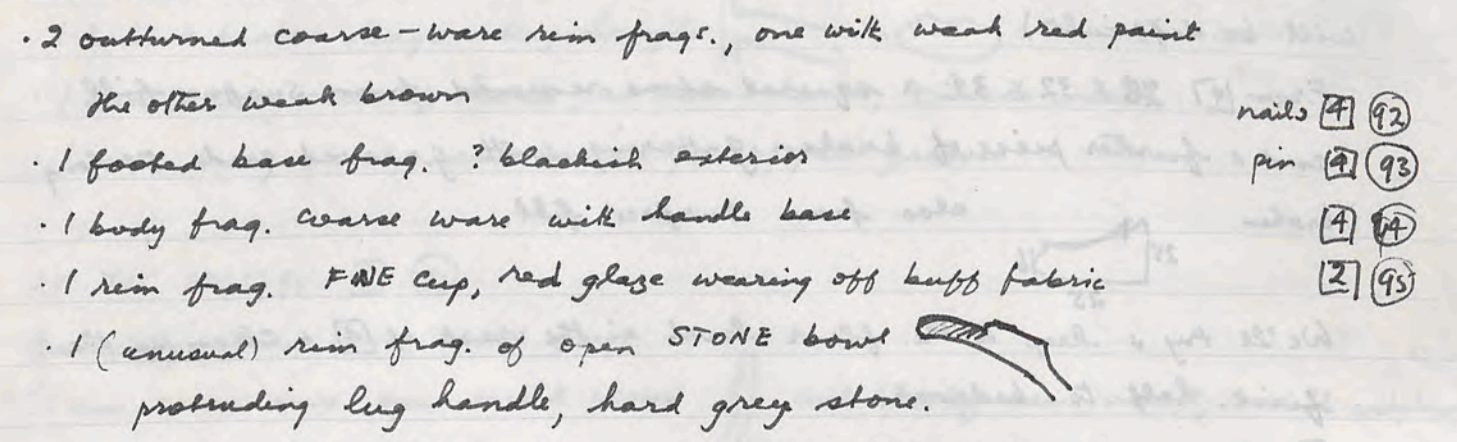 · 2 outturned coarse-ware rim frags., one with weak red paint
the other weak brown
nails 4 92
· 1 footed base frag. ? blackish exterior
pin 4 93
· 1 body frag. coarse ware with handle base
4 94
· 1 rim frag. FINE cup, red glaze wearing off buff fabric
2 95
· 1 (unusual) rim frag. of open STONE bowl
protruding lug handle, hard grey stone.